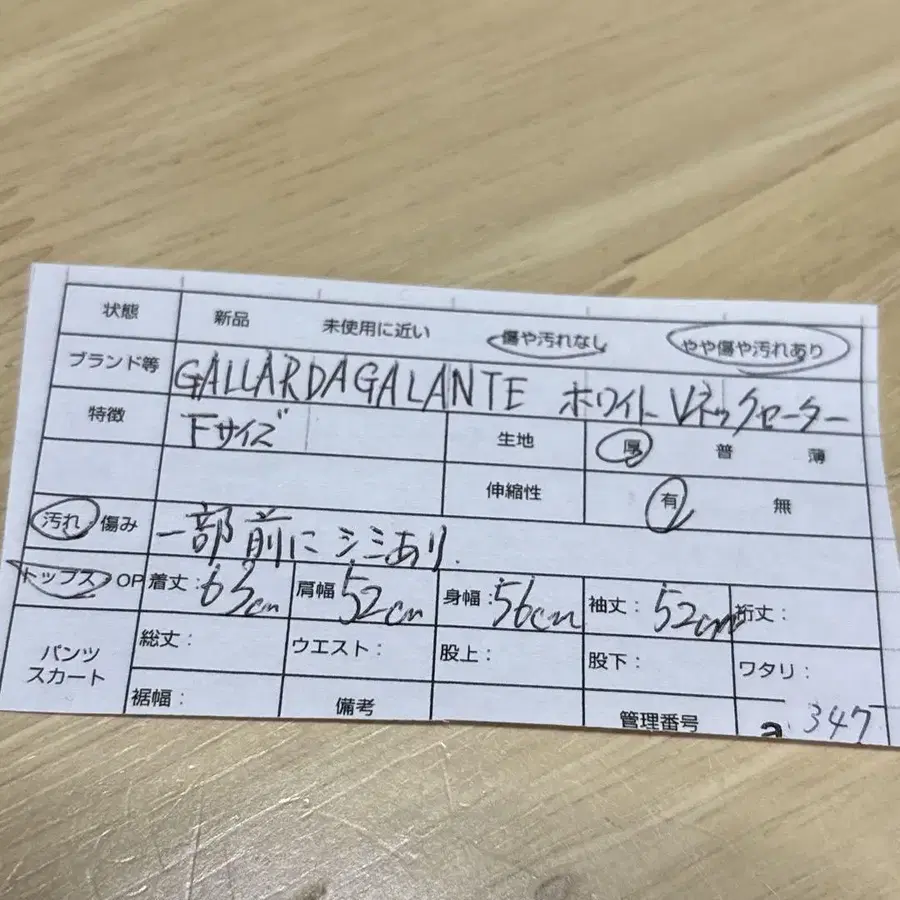 状態 新品 未使用に近い 傷や汚れなし やや傷や汚れあり
ブランド等 GALLARDAGALANTE ホワイト Vネックセーター
特徴 Fサイズ 生地 厚 普 薄
伸縮性 有 無
汚れ 傷み 一部前にシミあり.
トップス OP 着丈:63cm 肩幅 52cm 身幅:56cm 袖丈:52cm 裄丈:
パンツ スカート 総丈: ウエスト: 股上: 股下: ワタリ:
裾幅: 備考 管理番号 a 347